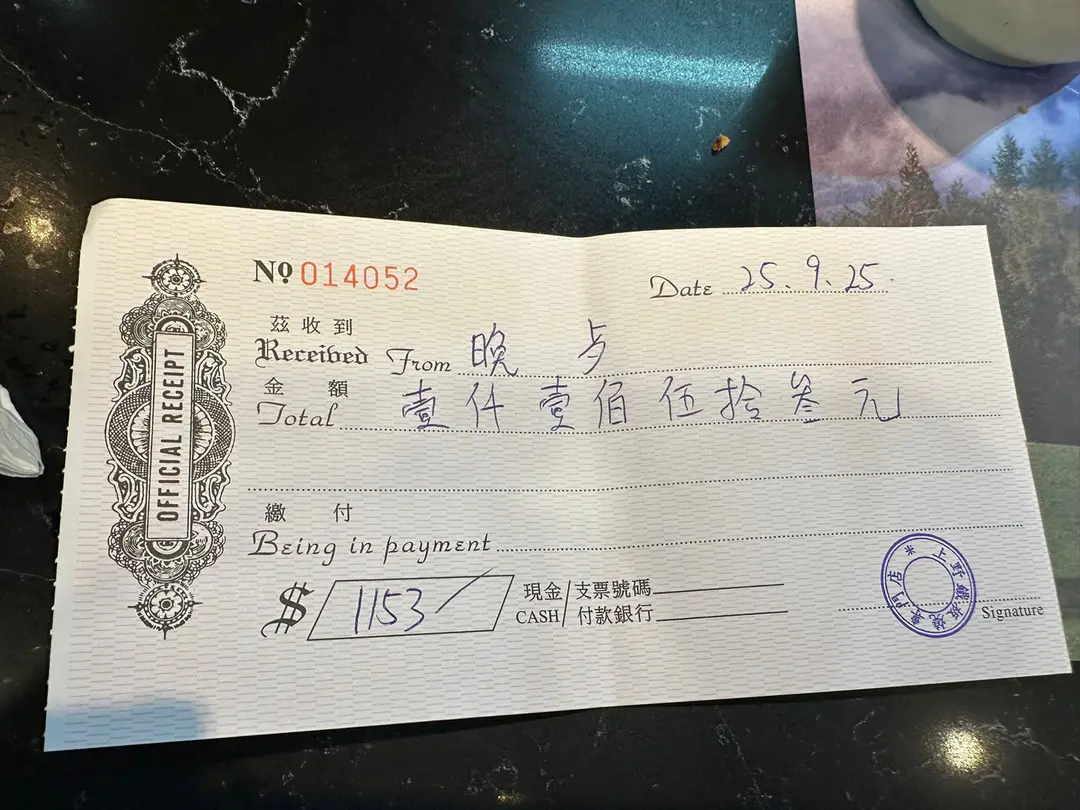 OFFICIAL RECEIPT
Nº 014052
Date 25.9.25.
茲收到
Received From 晚 步
金額
Total 壹仟壹佰伍拾叁元
繳付
Being in payment
$ 1153
現金 支票號碼
CASH 付款銀行
Signature
上野鐵板燒
東門店